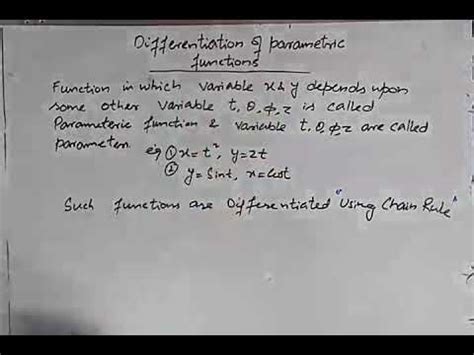 Differentiation of parametric
functions
Function in which variable x & y depends upon
some other variable t, θ, φ, z is called
Parameteric function & variable t, θ, φ, z are called
parameter.
eg ① x = t², y = 2t
② y = Sint, x = Cost
Such functions are Differentiated "Using Chain Rule"